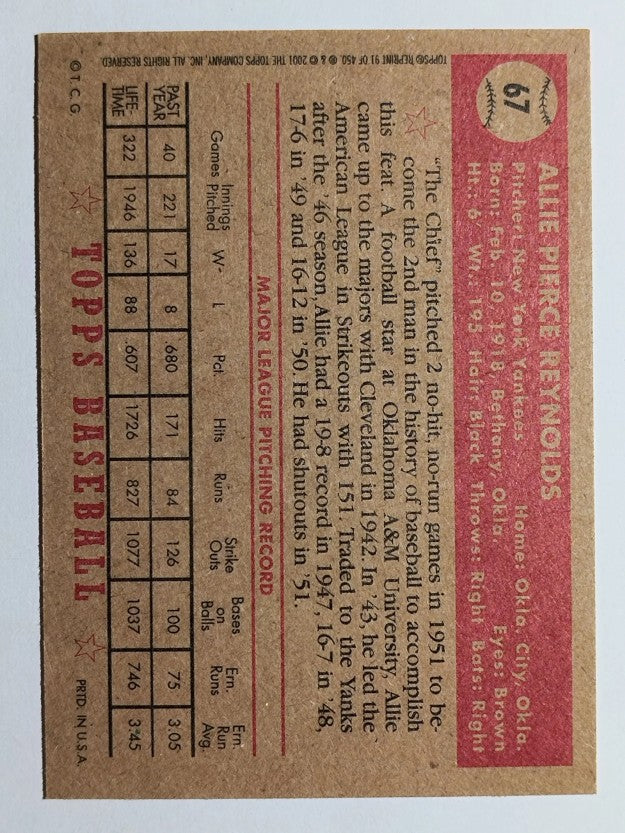 67
ALLIE PIERCE REYNOLDS
Pitcher: New York Yankees Home: Okla. City, Okla.
Born: Feb. 10, 1918, Bethany, Okla. Eyes: Brown
Ht.: 6 Wt.: 195 Hair: Black Throws: Right Bats: Right
"The Chief" pitched 2 no-hit, no-run games in 1951 to be-
come the 2nd man in the history of baseball to accomplish
this feat. A football star at Oklahoma A&M University, Allie
came up to the majors with Cleveland in 1942. In '43, he led the
American League in Strikeouts with 151. Traded to the Yanks
after the '46 season, Allie had a 19-8 record in 1947, 16-7 in '48,
17-6 in '49 and 16-12 in '50. He had shutouts in '51.
MAJOR LEAGUE PITCHING RECORD
Games Innings Pitched W- L Pct. Hits Runs Strike Outs Bases on Balls Ern. Runs Ern. Run Avg.
PAST YEAR 40 221 17 8 .680 171 84 126 100 75 3.05
LIFE-TIME 322 1946 136 88 .607 1726 827 1077 1037 746 3.45
©T.C.G. TOPPS BASEBALL PRTD. IN U.S.A.
TOPPS® REPRINT 91 OF 450 ® & © 2001 THE TOPPS COMPANY, INC. ALL RIGHTS RESERVED